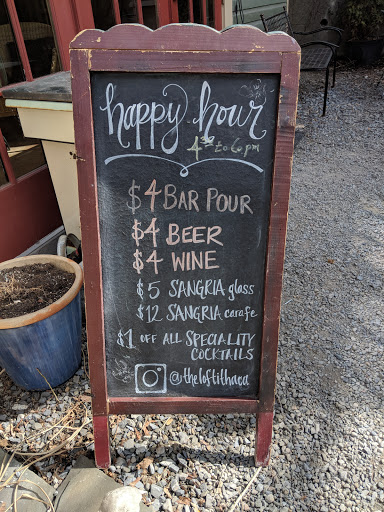 happy hour
4:30 to 6pm
$4 BAR POUR
$4 BEER
$4 WINE
$5 SANGRIA glass
$12 SANGRIA carafe
$1 OFF ALL SPECIALITY
COCKTAILS
@theloftithaca